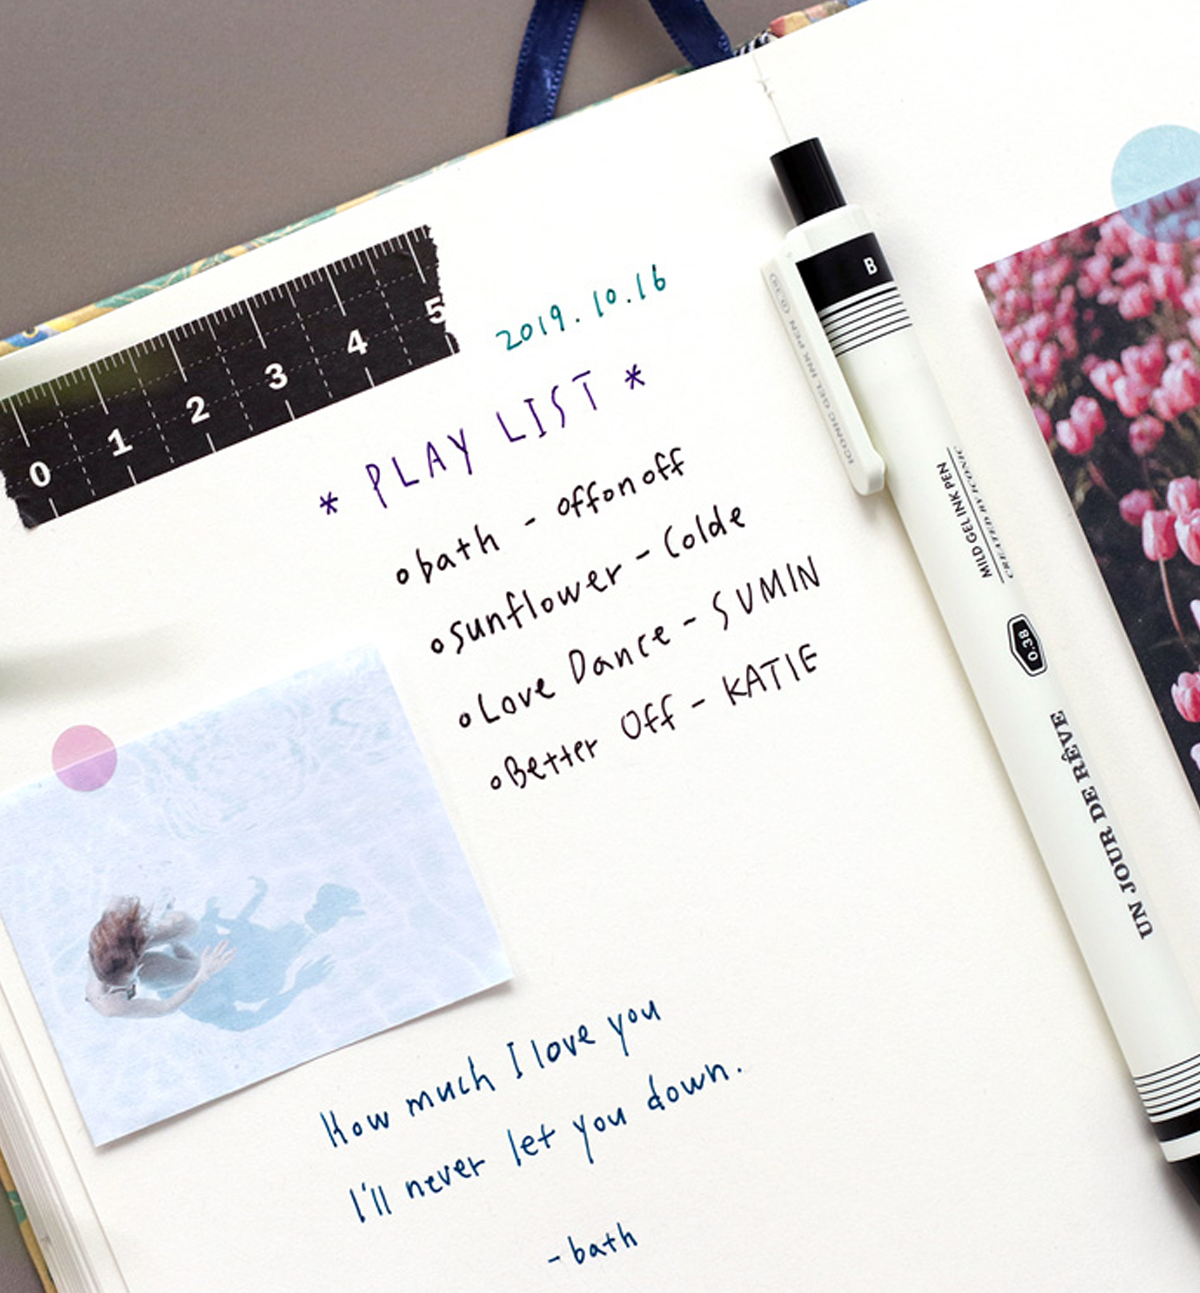 0 1 2 3 4 5
2019.10.16
* PLAY LIST *
bath - offonoff
sunflower - Colde
Love Dance - SUMIN
Better Off - KATIE
How much I love you
I'll never let you down.
- bath
B
ICONIC GEL INK PEN (0.38)
MILD GEL INK PEN
CREATED BY ICONIC
0.38
UN JOUR DE RÊVE